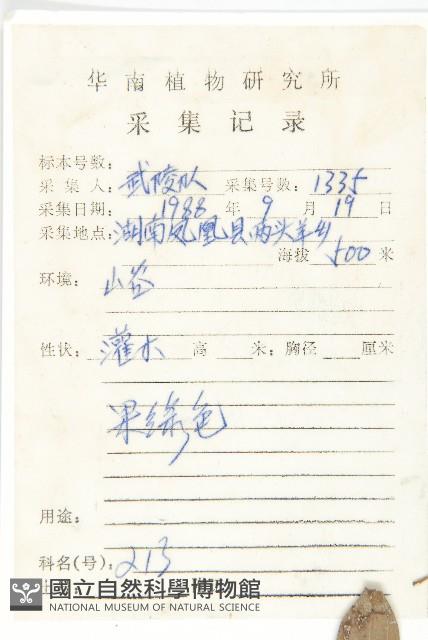 华南植物研究所
采集记录
标本号数：
采集人：武陵队 采集号数：1335
采集日期：1988年9月19日
采集地点：湖南凤凰县两头羊乡
海拔500米
环境：山谷
性状：灌木 高 米；胸径 厘米
果绿色
用途：
科名(号)：213
國立自然科學博物館
NATIONAL MUSEUM OF NATURAL SCIENCE